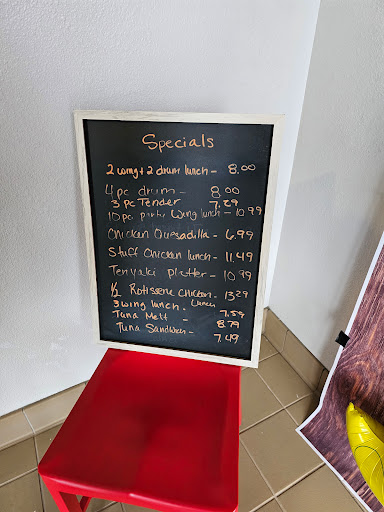 Specials
2 wing + 2 drum lunch - 8.00
4 pc drum - 8.00
3 pc Tender 7.29
10 pc party Wing lunch - 10.99
Chicken Quesadilla - 6.99
Stuff Chicken lunch - 11.49
Teriyaki platter - 10.99
1/2 Rotisserie Chicken Lunch - 13.29
3 wing lunch - 7.59
Tuna Melt - 8.79
Tuna Sandwich - 7.49